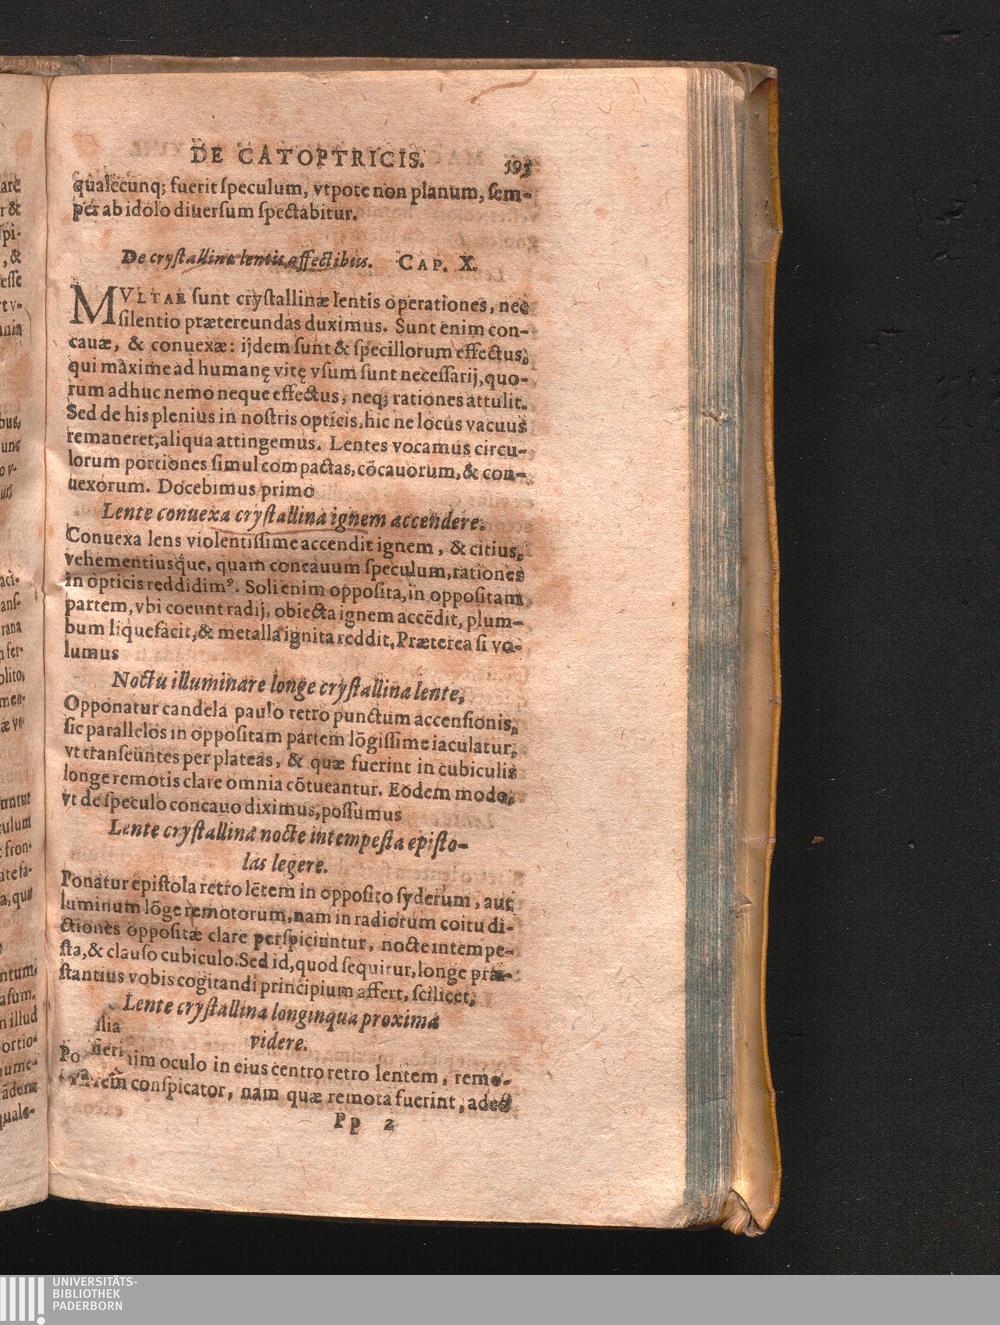 DE CATOPTRICIS. 595
qualecunq; fuerit ſpeculum, vtpote non planum, ſem-
per ab idolo diuerſum ſpectabitur.
De cryſtallinæ lentis affectibus. CAP. X.
MVLTAE ſunt cryſtallinæ lentis operationes, nec
ſilentio prætereundas duximus. Sunt enim con-
cauæ, & conuexæ: ijdem ſunt & ſpecillorum effectus,
qui maxime ad humanę vitę vſum ſunt neceſſarij, quo-
rum adhuc nemo neque effectus, neq; rationes attulit.
Sed de his plenius in noſtris opticis, hic ne locus vacuus
remaneret, aliqua attingemus. Lentes vocamus circu-
lorum portiones ſimul compactas, cōcauorum, & con-
uexorum. Docebimus primo
Lente conuexa cryſtallina ignem accendere.
Conuexa lens violentiſſime accendit ignem, & citius,
vehementiusque, quam concauum ſpeculum, rationes
in opticis reddidimꝰ. Soli enim oppoſita, in oppoſitam
partem, vbi coeunt radij, obiecta ignem accēdit, plum-
bum liquefacit, & metalla ignita reddit, Præterea ſi vo-
lumus
Noctu illuminare longe cryſtallina lente,
Opponatur candela paulo retro punctum accenſionis,
ſic parallelos in oppoſitam partem lōgiſſime iaculatur,
vt tranſeuntes per plateas, & quæ fuerint in cubiculis
longe remotis clare omnia cōtueantur. Eodem modo,
vt de ſpeculo concauo diximus, poſſumus
Lente cryſtallina nocte intempeſta epiſto-
las legere.
Ponatur epiſtola retro lētem in oppoſito ſyderum, aut
luminum lōge remotorum, nam in radiorum coitu di-
ctiones oppoſitæ clare perſpiciuntur, nocte intempe-
ſta, & clauſo cubiculo. Sed id, quod ſequitur, longe præ-
ſtantius vobis cogitandi principium affert, ſcilicet,
Lente cryſtallina longinqua proxima
videre.
Po nim oculo in eius centro retro lentem, remo-
rem conſpicator, nam quæ remota fuerint, adeo
Pp 2
UNIVERSITÄTS-
BIBLIOTHEK
PADERBORN